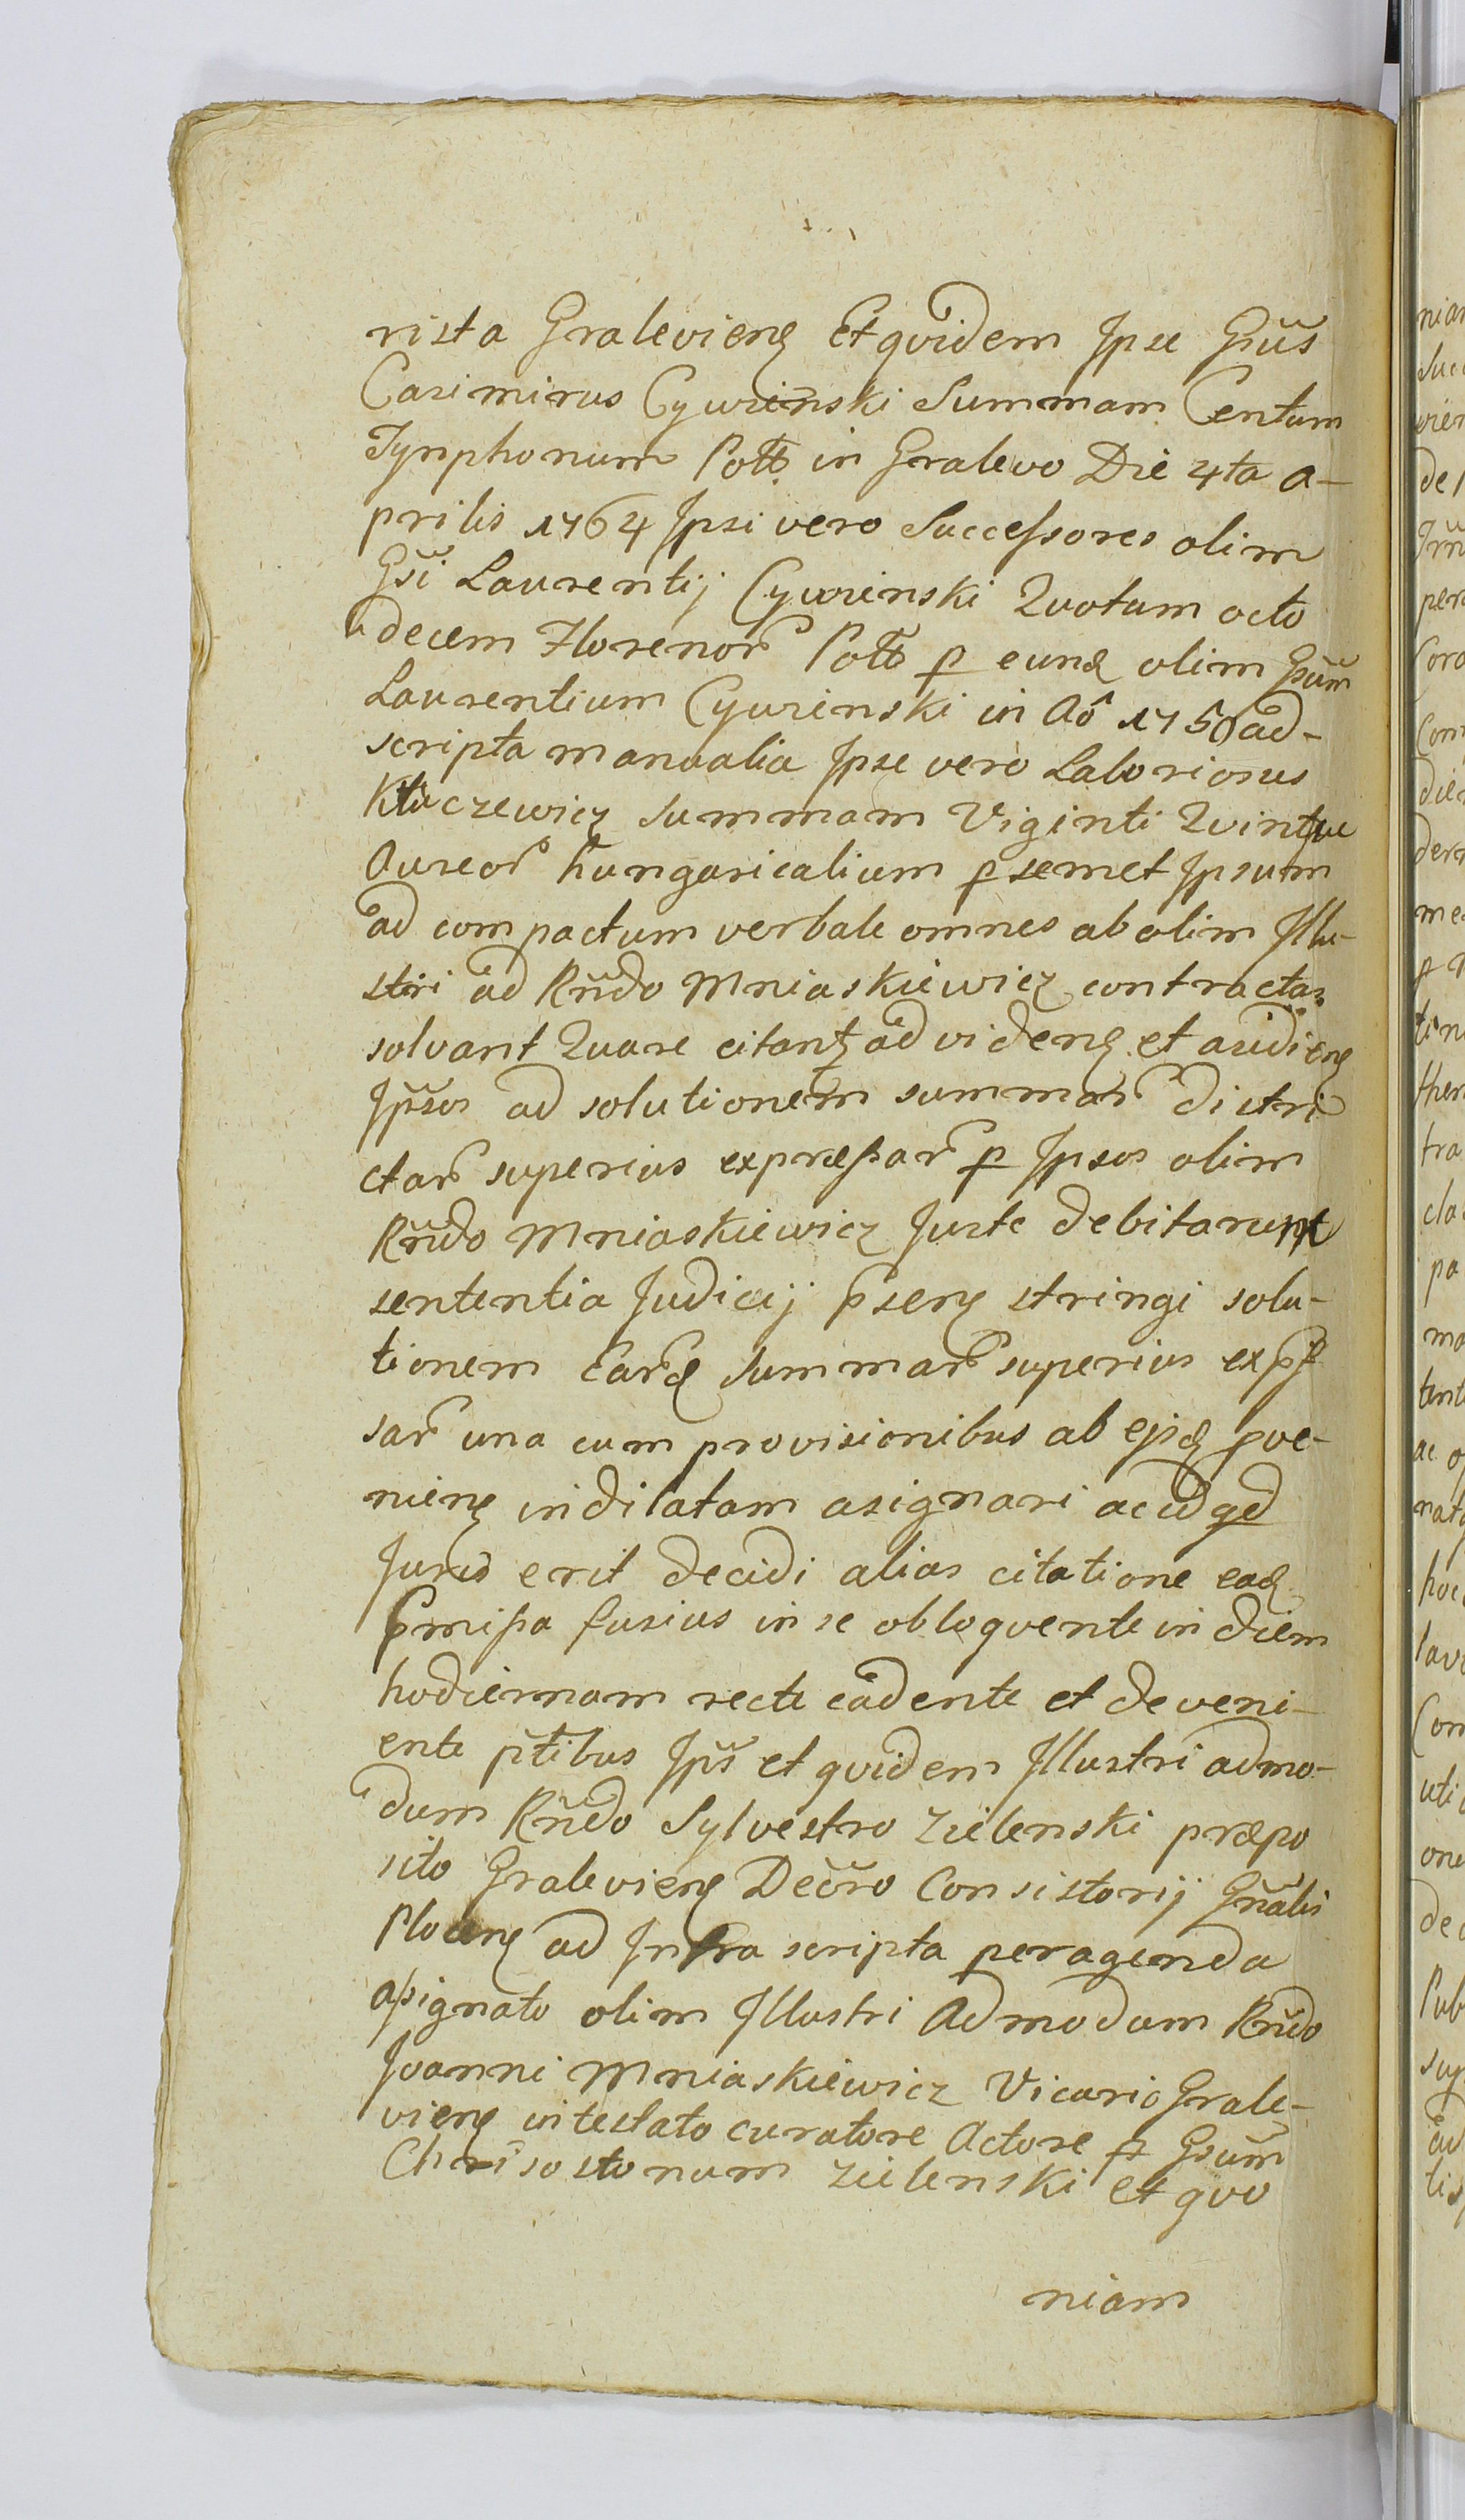 rista Gralevienꝭ Et qvidem Jpse Gsūs
Casimirus Cywinski Summam Centum
Tynphonum Poltt in Gralewo Die 4ta A-
prilis 1764 Jpsi vero Successores olim
Gsi Laurentij Cywinski Qvotam octo
decem Florenor Poltt p eundꝭ olim Gsum
Laurentium Cywinski in Ao 1750 ad-
scripta manualia Jpse vero Laboriosus
Kluczewicz Summam Viginti Qvinqve
Aureor hungaricalium p semet Jpsum
ad compactum verbale omnes ab olim Jllu-
stri ad Rndo Mniaskiewicz contractas
solvant Qvare citantꝭ ad videnꝭ et audienꝭ
Jpsos ad solutionem summar distri
ctar superius expressar p Jpsos olim
Rndo Mniaskiewicz Juste debitarum
sententia Judicij p̄senꝭ stringi solu-
tionem Eardꝭ Summar superius exp̄s
sar una cum provisionibus ab ejsdꝭ pve-
nienꝭ indilatam asignari ac id qd
Juris erit decidi alias citatione eadꝭ
p̄missa fusius in se obloqvente in diem
hodiernam recte cadente et deveni-
ente ptibus Jps et qvidem Jllustri admo-
dum Rndo Sylvestro Zielenski præpo
sito Gralevienꝭ Decro Consistorij Gnalis
Plocenꝭ ad Jnfra scripta peragenda
assignato olim Jllustri Admodum Rndo
Joanni Mniaskiewicz Vicario Grale-
vienꝭ intestato curatore Actore p Gsum
Chrisostonum Zielenski et qvo
niam